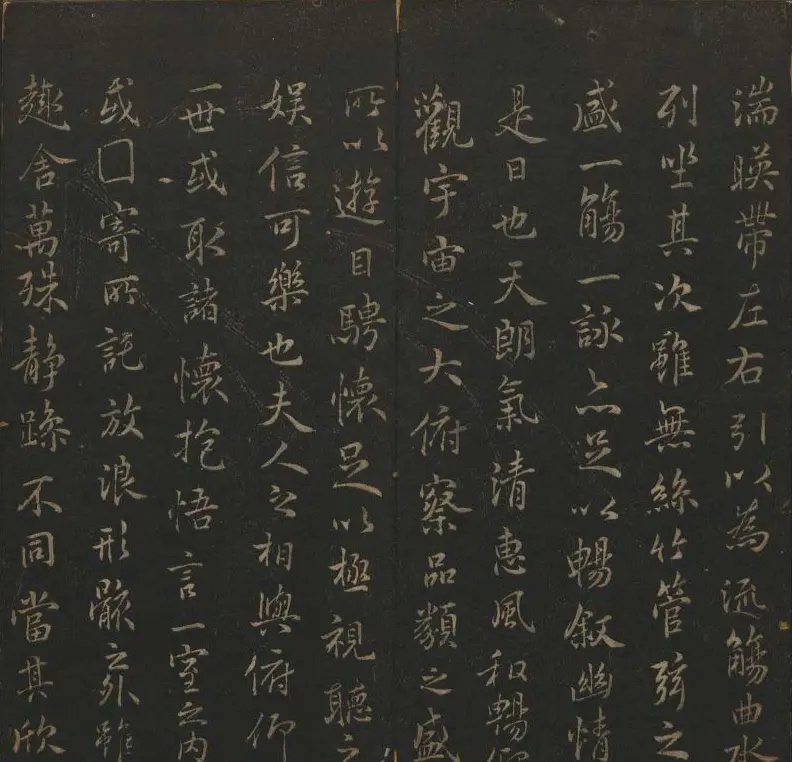 湍暎帶左右引以為流觴曲水
列坐其次雖無絲竹管弦之
盛一觴一詠亦足以暢叙幽情
是日也天朗氣清惠風和暢仰
觀宇宙之大俯察品類之盛
所以遊目騁懷足以極視聽之
娛信可樂也夫人之相與俯仰
一世或取諸懷抱悟言一室之內
或囗寄所託放浪形骸之外雖
趣舍萬殊静躁不同當其欣